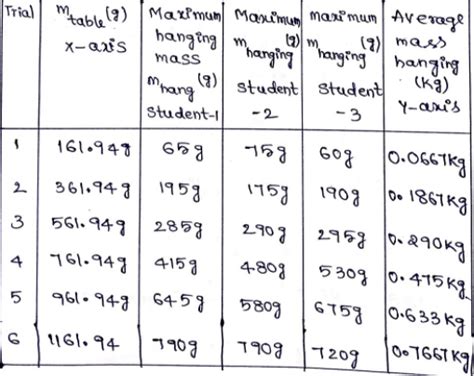 Trial | m table (g) x-axis | Maximum hanging mass m hang (g) Student-1 | Maximum m hanging (g) Student -2 | maximum m hanging (g) Student -3 | Average mass hanging (kg) Y-axis
1 | 161.94g | 65g | 75g | 60g | 0.0667kg
2 | 361.94g | 195g | 175g | 190g | 0.1867kg
3 | 561.94g | 285g | 290g | 295g | 0.290kg
4 | 761.94g | 415g | 480g | 530g | 0.475kg
5 | 961.94g | 645g | 580g | 675g | 0.633kg
6 | 1161.94 | 790g | 790g | 720g | 0.7667kg